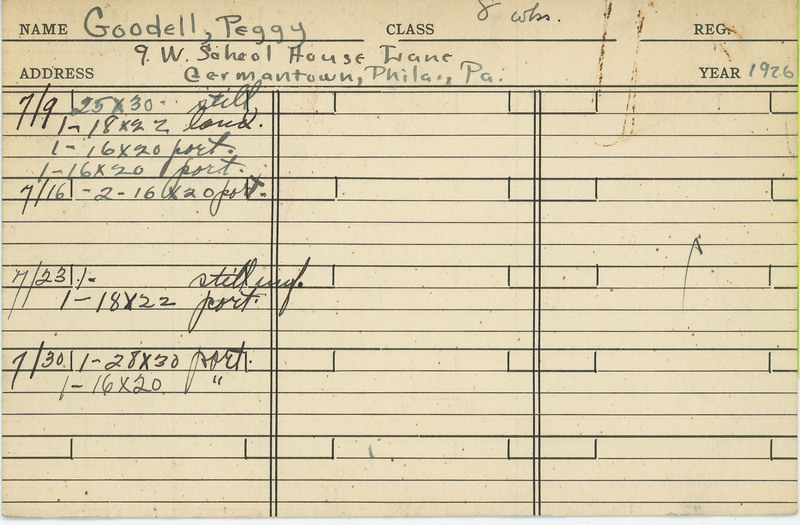 NAME Goodell, Peggy CLASS 8 wks. REG.
9. W. School House Lane
ADDRESS Germantown, Phila., Pa. YEAR 1926
7/9 25x30- still
1-18x22 land.
1-16x20 port.
1-16x20 port.
7/16 -2-16x20 port.
7/23 1- still
1-18x22 port.
7/30 1-28x30 port.
1-16x20 "